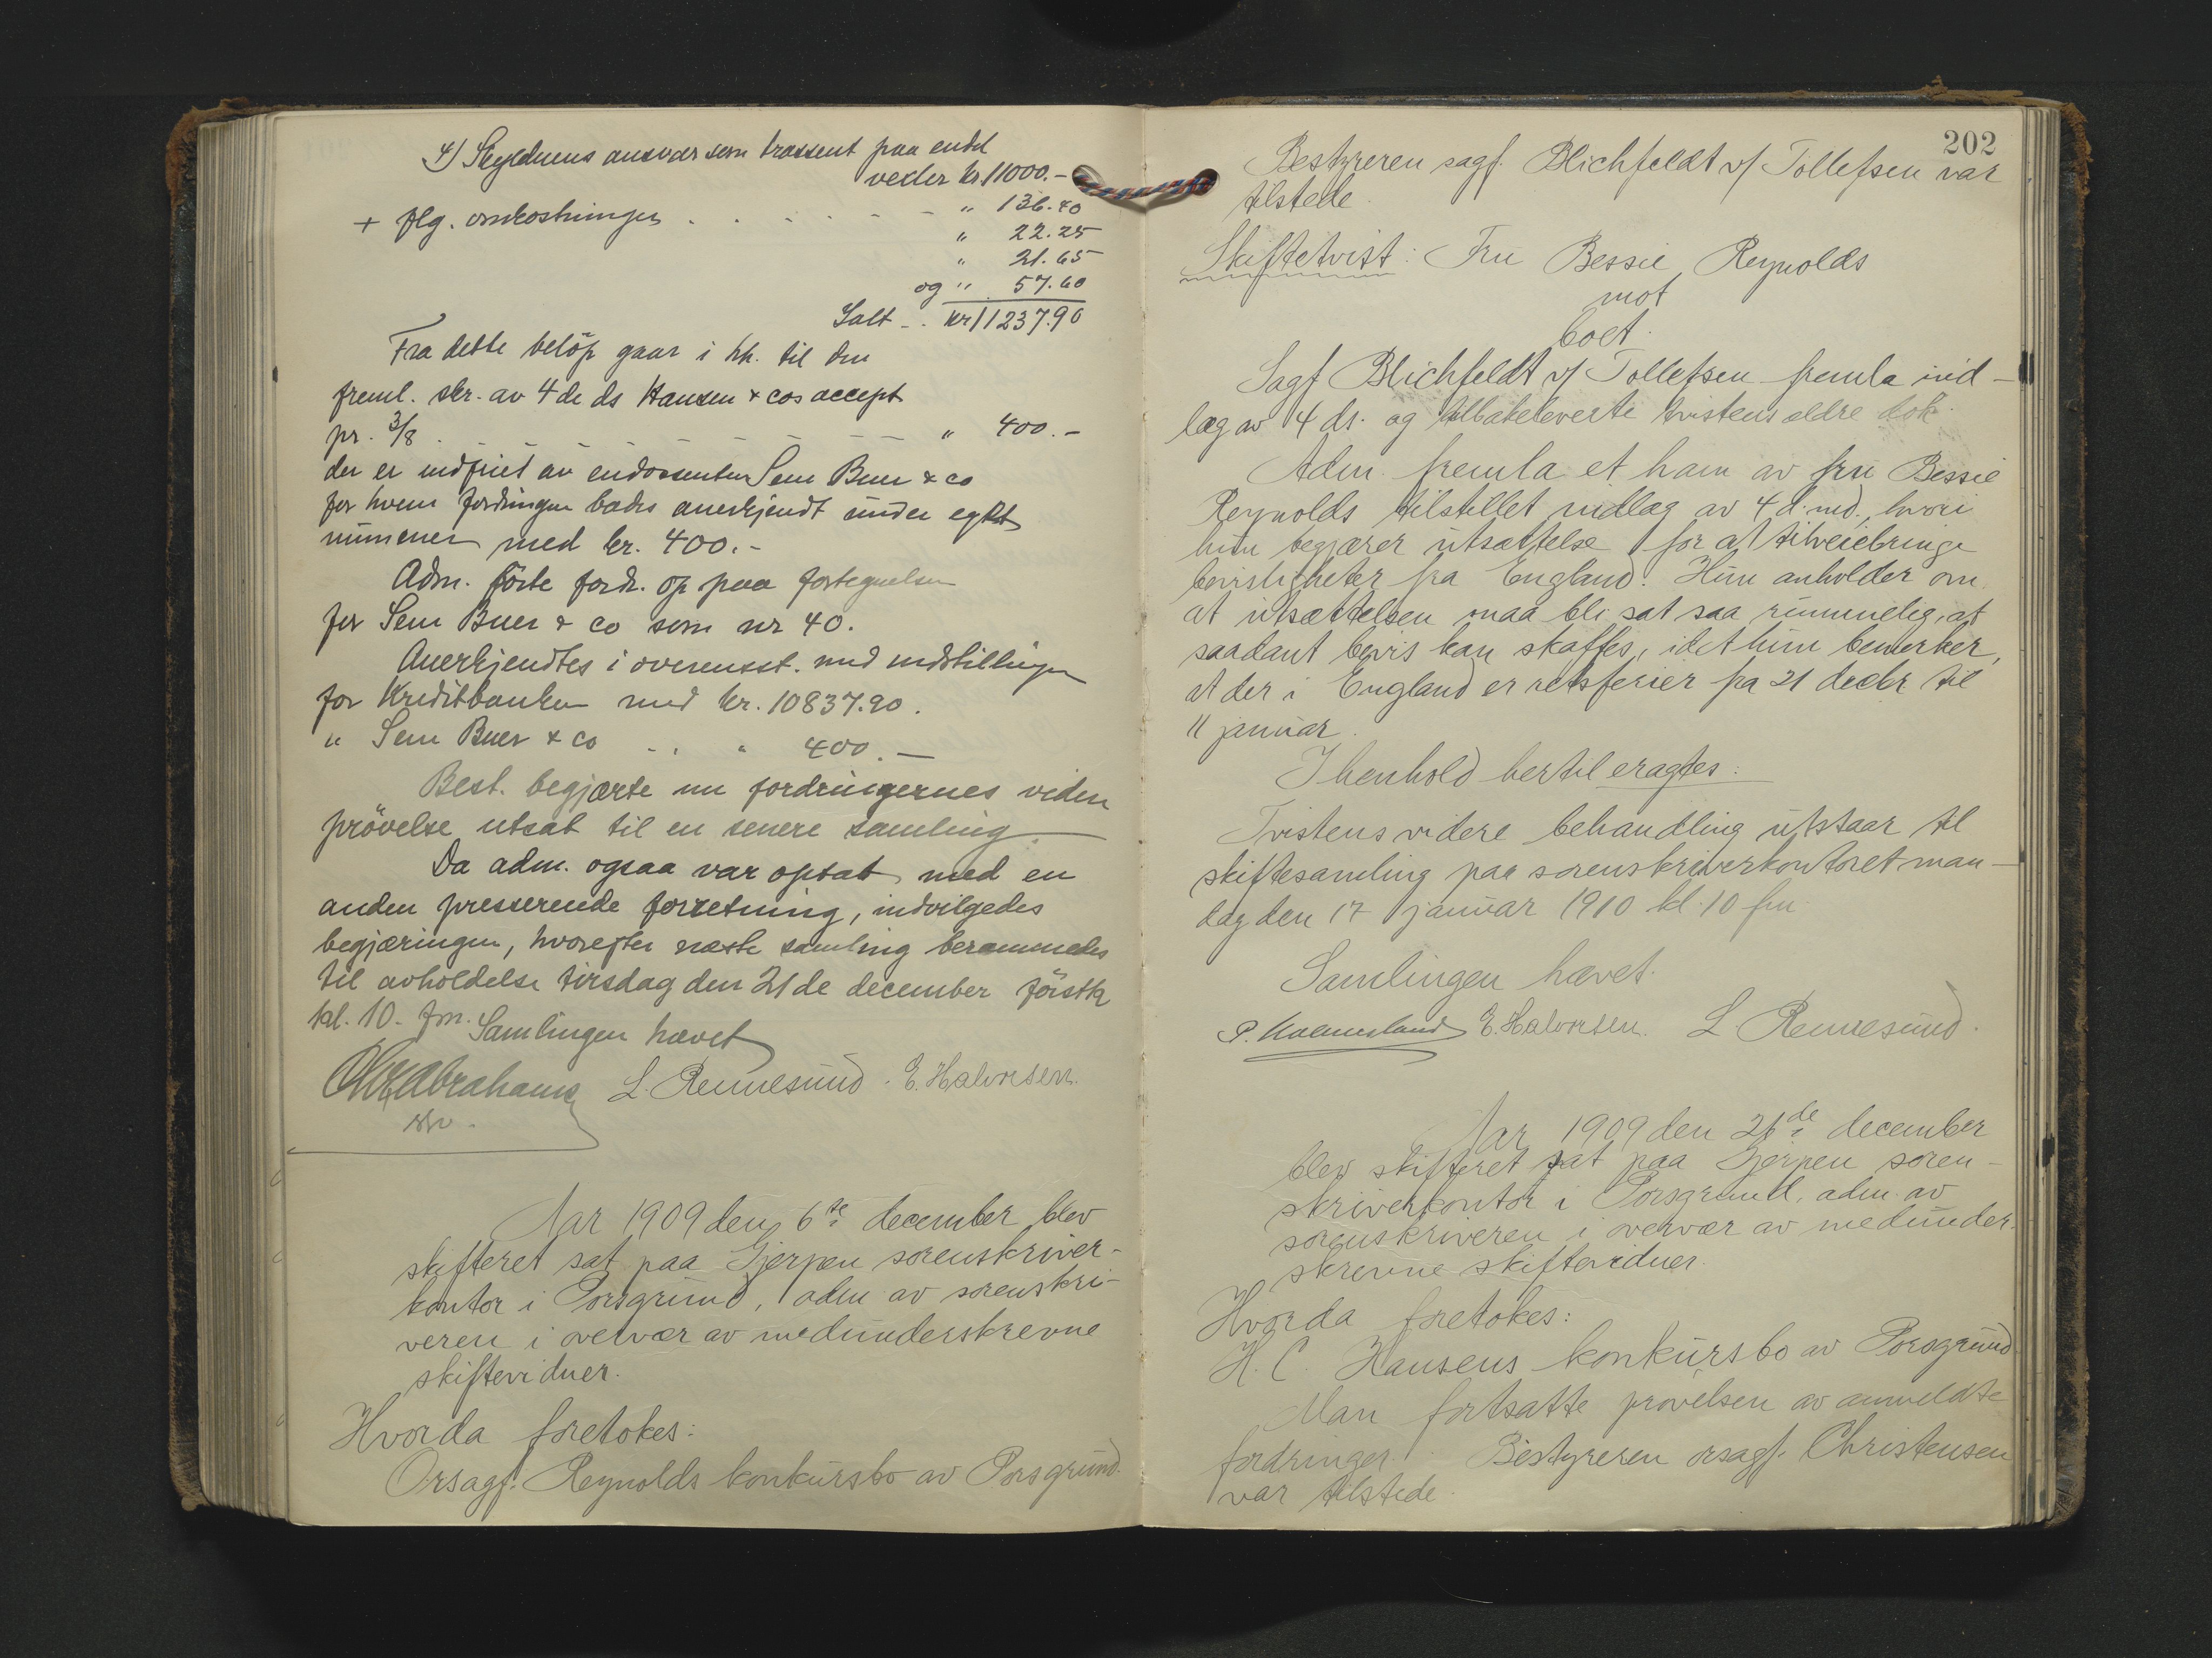 4) Skyldnerens ansvar som trassent paa endel
vexler kr. 11000.-
+ flg. omkostninger . . . . - - - " 136.40
" 22.25
" 21.65
og " 57.60
Ialt - . kr 11237.90
Fra dette beløp gaar i hh. til den
freml. skr. av 4de ds Hansen & cos accept
pr. 3/8 . - - - - - - - - " 400.-
der er indfriet av endossenten Sem Buer & co
for hvem fordringen bødes anerkjendt under eget
nummer med kr. 400.-
Adm. førte fordr. op paa fortegnelsen
for Sem Buer & co som nr 40.
Anerkjendtes i overensst. med indstillingen
for Kreditbanken med kr. 10837.90.
" Sem Buer & co - . " 400.-
Best. begjærte nu fordringernes videre
prøvelse utsat til en senere samling.
Da adm. ogsaa var optat med en
anden presserende forretning, indvilgedes
begjæringen, hvorefter næste samling berammedes
til avholdelse tirsdag den 21de december førstk
kl. 10. fm. Samlingen hævet
Abrahams L. Rennesund. E. Halvorsen.
Aar 1909 den 6te december blev
skifteret sat paa Gjerpen sorenskriver-
kontor i Porsgrund, adm av sorenskri-
veren i overvær av medunderskrevne
skiftevidner.
Hvorda foretokes:
Orsagf. Reynolds konkursbo av Porsgrund.
202
Bestyreren sagf. Blichfeldt v/ Tollefsen var
tilstede.
Skiftetvist: Fru Bessie Reynolds
mot
boet.
Sagf Blichfeldt v/ Tollefsen fremla ind-
læg av 4 ds. og tilbakeleverte tvistens ældre dok.
Adm. fremla et ham av fru Bessie
Reynolds tilstillet indlæg av 4 d. md., hvori
hun begjærer utsættelse for at tilveiebringe
bevisligheter fra England. Hun anholder om
at utsættelsen maa bli sat saa rummelig, at
saadant bevis kan skaffes, idet hun bemerker,
at der i England er retsferier fra 21 decbr til
11 januar.
I henhold hertil eragtes:
Tvistens videre behandling utstaar til
skiftesamling paa sorenskriverkontoret man-
dag den 17 januar 1910 kl. 10 fm.
Samlingen hævet.
E. Halvorsen. L Rennesund.
Aar 1909 den 21de december
blev skifteret sat paa Gjerpen soren-
skriverkontor i Porsgrund, adm. av
sorenskriveren i overvær av medunder-
skrevne skiftevidner.
Hvorda foretokes:
H. C. Hansens konkursbo av Porsgrund
Man fortsatte prøvelsen av anmeldte
fordringer. Bestyreren orsagf. Christensen
var tilstede.